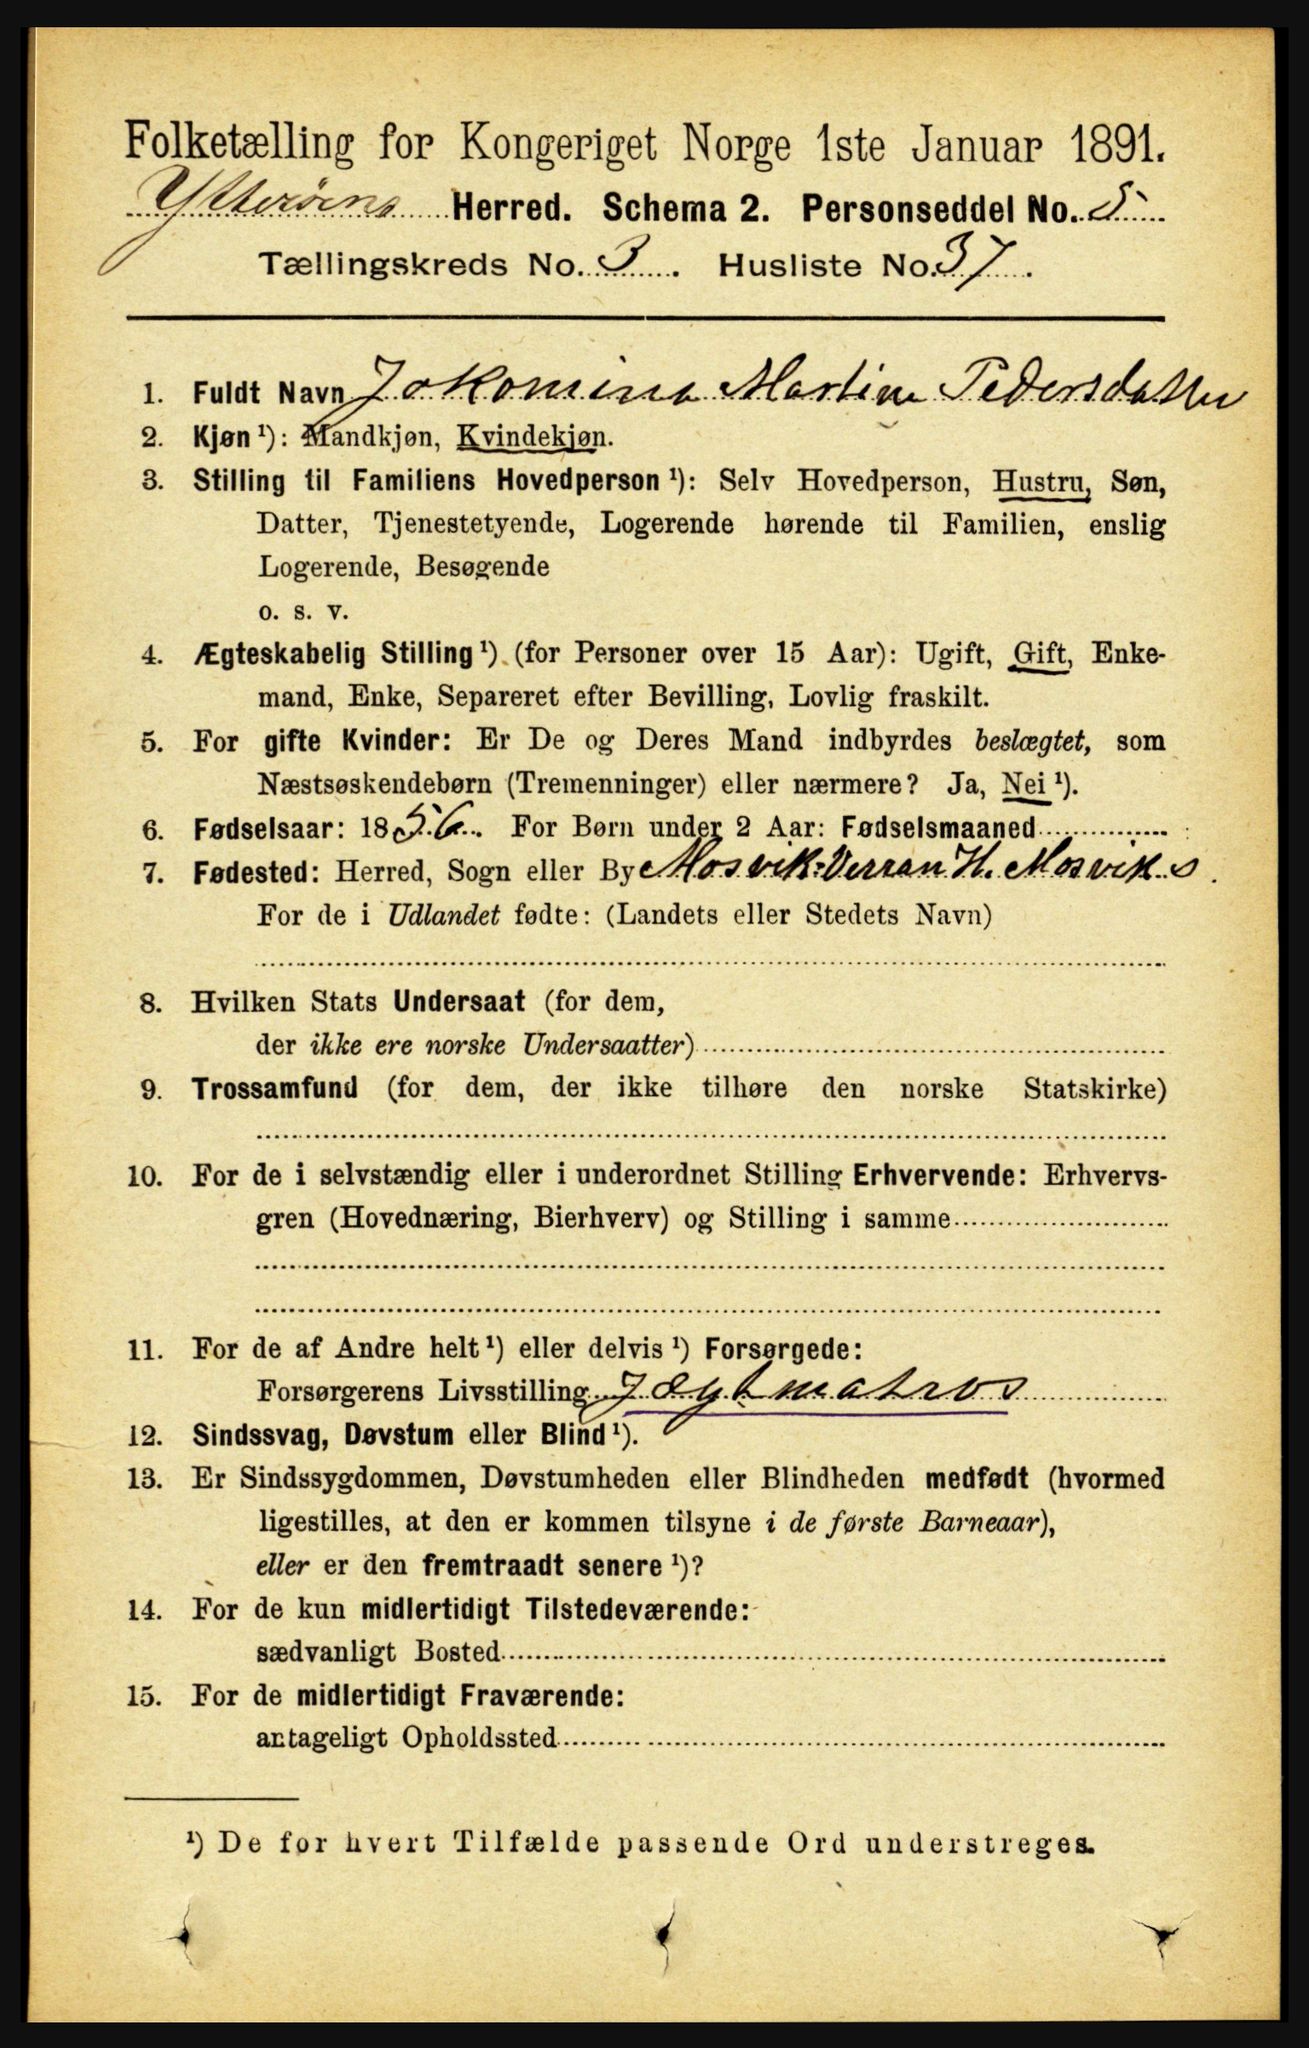 Folketælling for Kongeriget Norge 1ste Januar 1891.
Ytterøens Herred. Schema 2. Personseddel No. 5
Tællingskreds No. 3. Husliste No. 37.
1. Fuldt Navn Jakomina Martine Pedersdatter
2. Kjøn¹): Mandkjøn, Kvindekjøn.
3. Stilling til Familiens Hovedperson¹): Selv Hovedperson, Hustru, Søn,
Datter, Tjenestetyende, Logerende hørende til Familien, enslig
Logerende, Besøgende
o. s. v.
4. Ægteskabelig Stilling¹) (for Personer over 15 Aar): Ugift, Gift, Enke-
mand, Enke, Separeret efter Bevilling, Lovlig fraskilt.
5. For gifte Kvinder: Er De og Deres Mand indbyrdes beslægtet, som
Næstsøskendebørn (Tremenninger) eller nærmere? Ja, Nei¹).
6. Fødselsaar: 1856. For Børn under 2 Aar: Fødselsmaaned
7. Fødested: Herred, Sogn eller By Mosvik-Verran H. Mosvik s.
For de i Udlandet fødte: (Landets eller Stedets Navn)
8. Hvilken Stats Undersaat (for dem,
der ikke ere norske Undersaatter)
9. Trossamfund (for dem, der ikke tilhøre den norske Statskirke)
10. For de i selvstændig eller i underordnet Stilling Erhvervende: Erhvervs-
gren (Hovednæring, Bierhverv) og Stilling i samme
11. For de af Andre helt¹) eller delvis¹) Forsørgede:
Forsørgerens Livsstilling Jægtmatros
12. Sindssvag, Døvstum eller Blind¹).
13. Er Sindssygdommen, Døvstumheden eller Blindheden medfødt (hvormed
ligestilles, at den er kommen tilsyne i de første Barneaar),
eller er den fremtraadt senere¹)?
14. For de kun midlertidigt Tilstedeværende:
sædvanligt Bosted
15. For de midlertidigt Fraværende:
antageligt Opholdssted
¹) De for hvert Tilfælde passende Ord understreges.